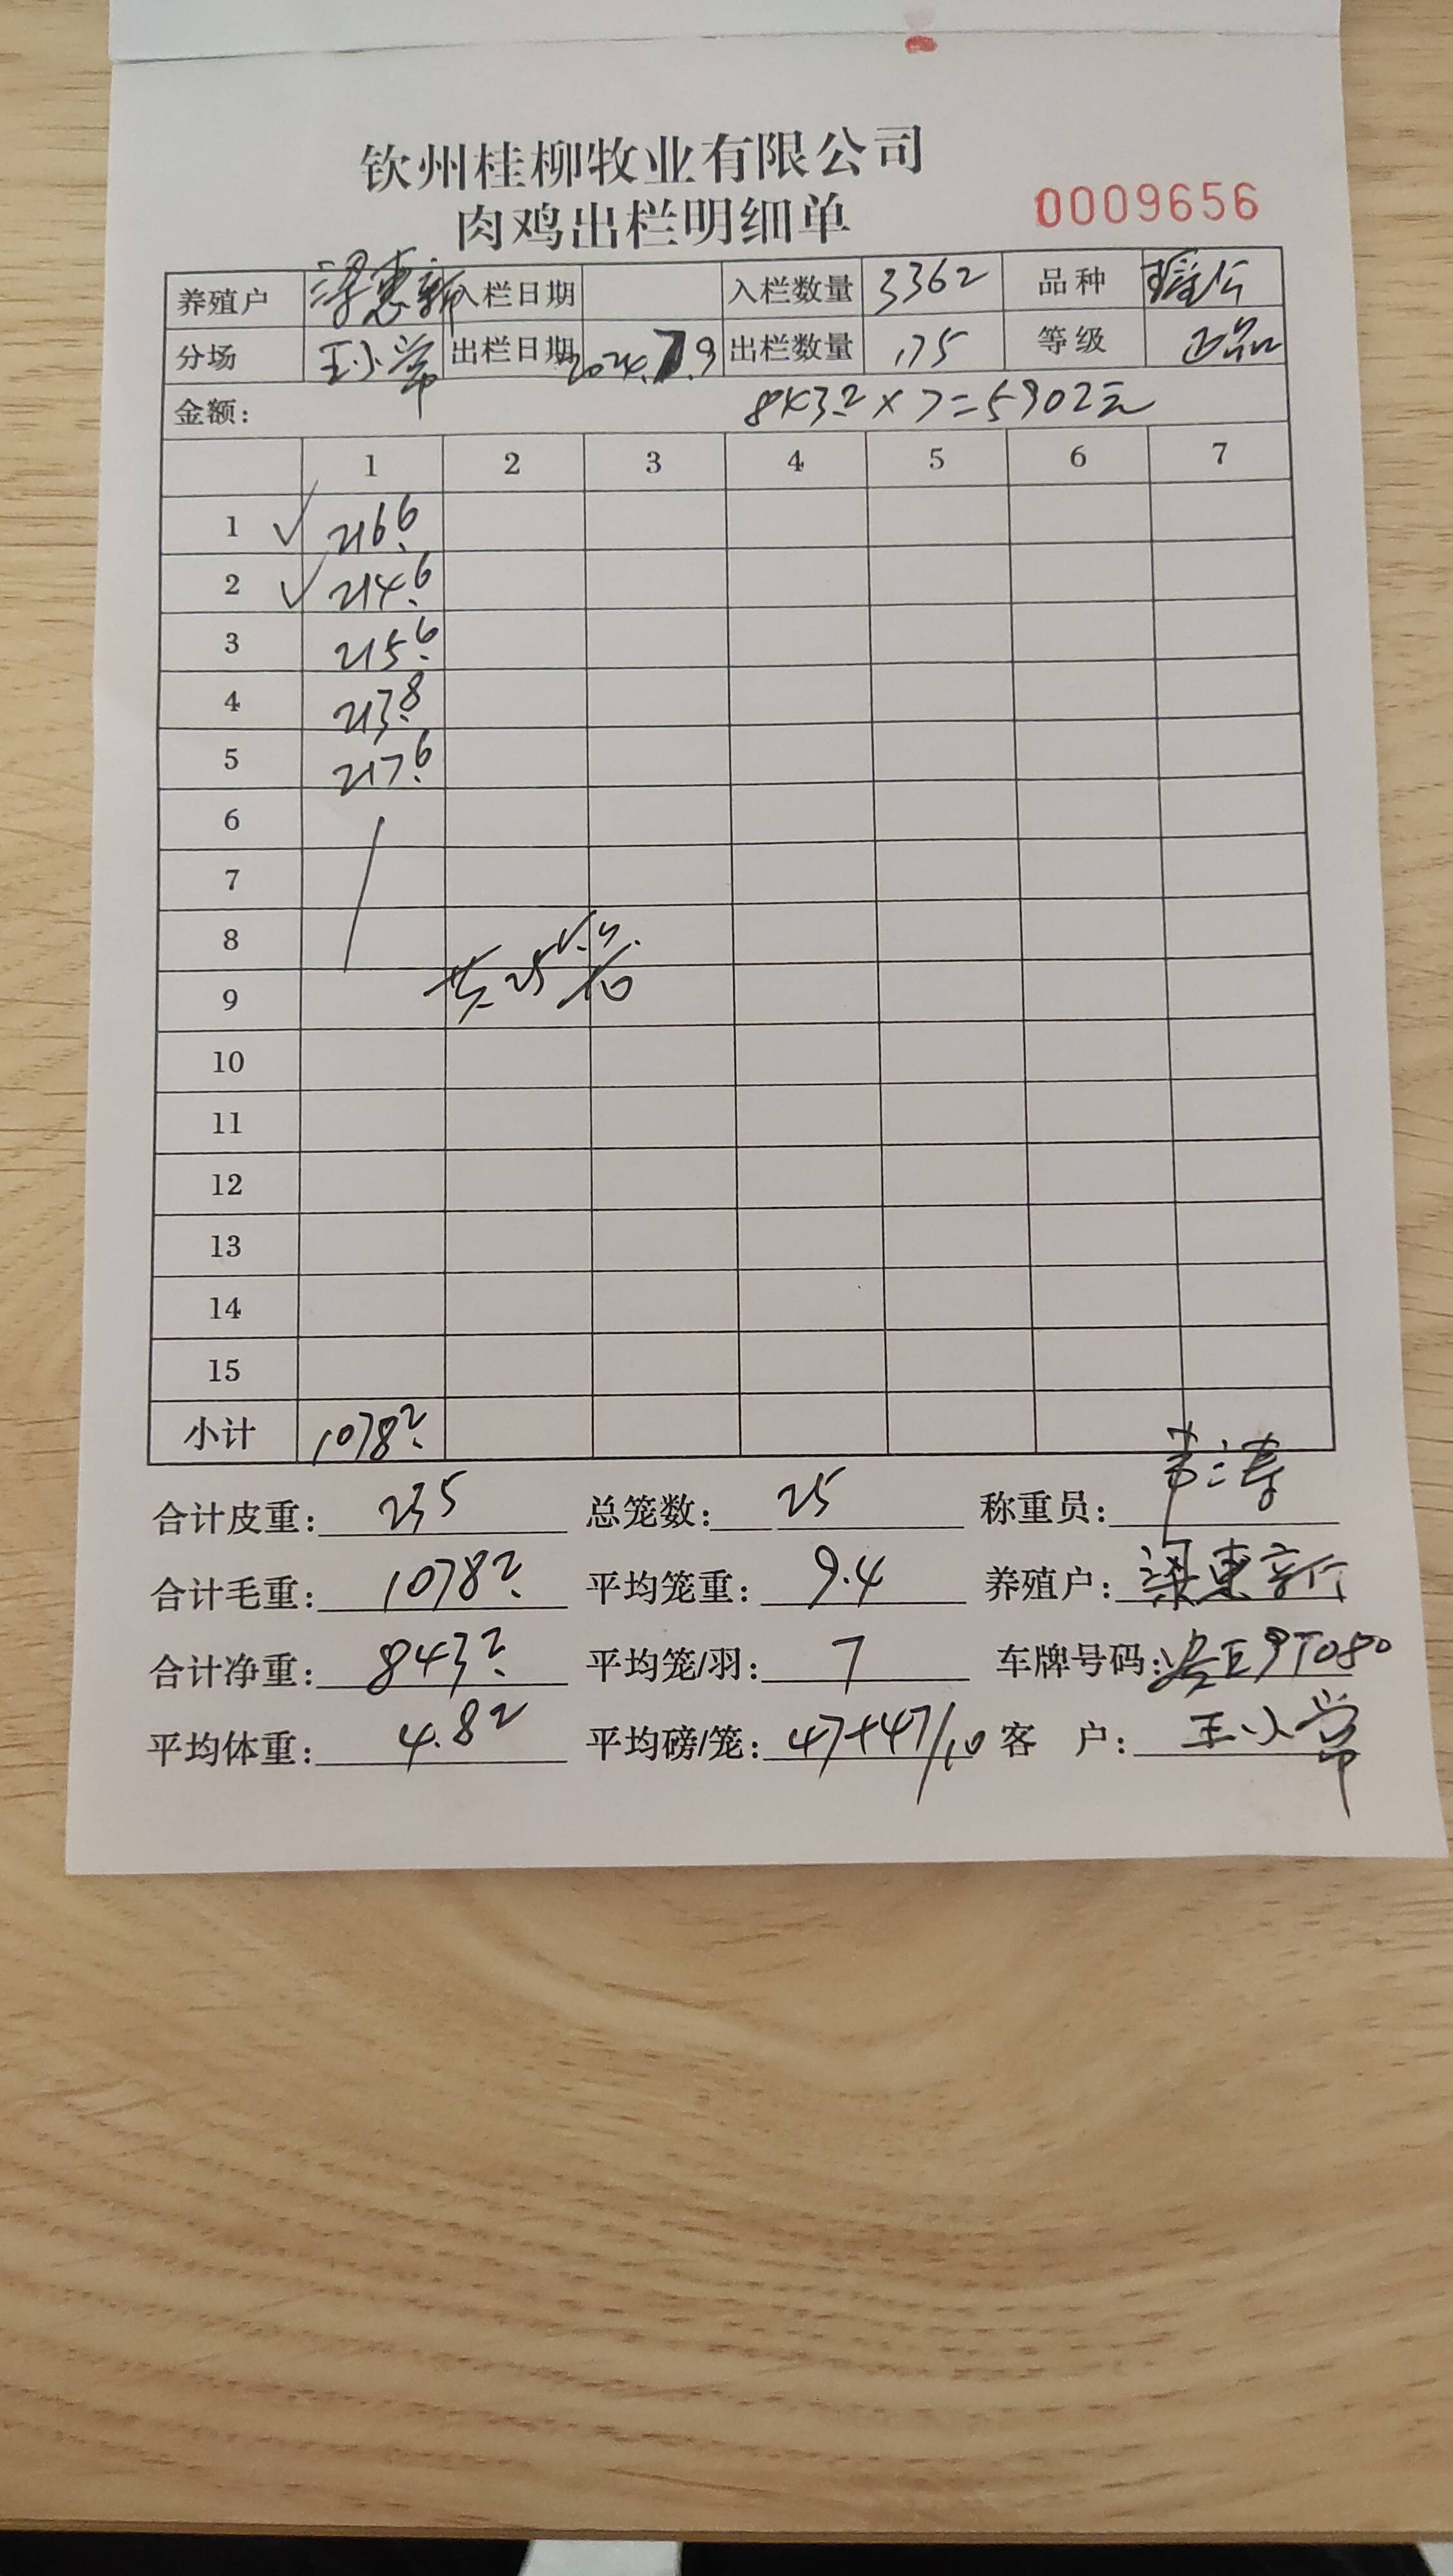 钦州桂柳牧业有限公司
肉鸡出栏明细单 0009656
养殖户 梁惠新 入栏日期 入栏数量 3362 品种
分场 王小常 出栏日期 2024.7.9 出栏数量 175 等级 正品
金额: 843.2×7=5902元
1 2 3 4 5 6 7
1 216.6
2 214.6
3 215.6
4 213.8
5 217.6
6
7
8
9 共25
10
11
12
13
14
15
小计 1078.2
合计皮重: 235 总笼数: 25 称重员:
合计毛重: 1078.2 平均笼重: 9.4 养殖户: 梁惠新
合计净重: 843.2 平均笼/羽: 7 车牌号码: 9T080
平均体重: 4.82 平均磅/笼: 47+47/10 客户: 王小常